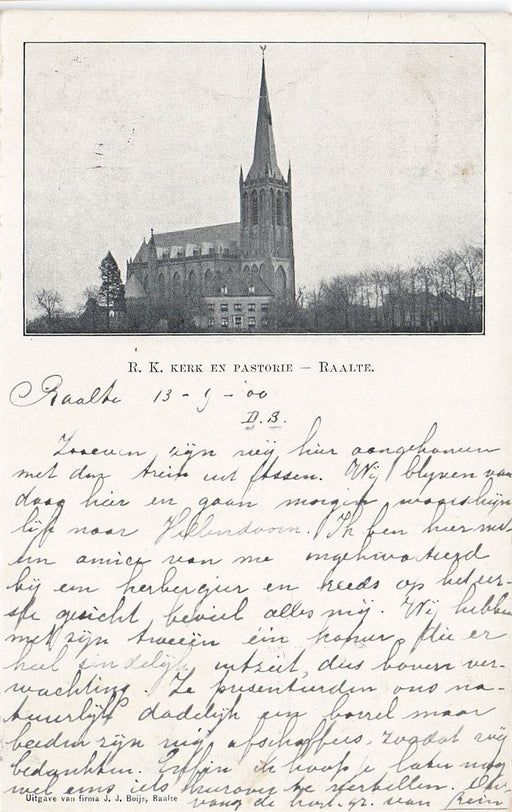 R. K. KERK EN PASTORIE — RAALTE.
Raalte 13 - 9 - 00
D.B.
Zooeven zijn wij hier aangekomen
met den trein uit Assen. Wij blijven van
daag hier en gaan morgen waarschijn
lijk naar Hellendoorn. Ik ben hier met
een amice van me ingekwartierd
bij een herbergier en reeds op het eer-
ste gezicht beviel alles mij. Wij hebben
met zijn tweeën één kamer, die er
heel zindelijk uitziet, dus boven ver-
wachting. Ze presenteerden ons na-
tuurlijk dadelijk een borrel maar
beiden zijn wij afschaffers, zoodat wij
bedankten. Enfin ik hoop je later nog
wel eens iets hierover te vertellen.
van
Uitgave van firma J. J. Buijs, Raalte